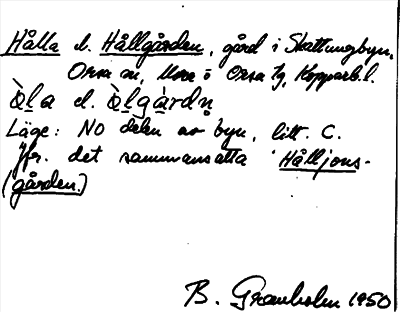 Hålla el. Hållgården, gård i Skattungbyn,
Orsa sn, Mora o Orsa tg, Kopparb. l.
Òl̠a el. Òl̠gàrdn̥
Läge: NO delen av byn, litt. C.
Jfr. det sammansatta Hålljons-
(gården.)
B. Granholm 1950